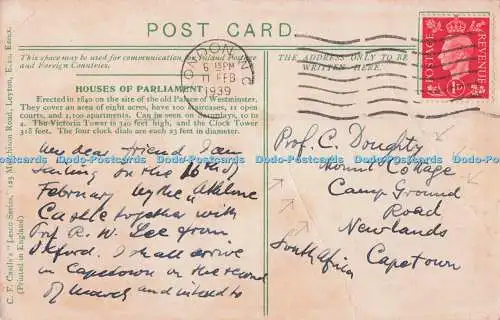 POST CARD
This space may be used for communication to Inland Postage and Foreign Countries.
THE ADDRESS ONLY TO BE WRITTEN HERE.
LONDON
6 15PM
11 FEB
1939
POSTAGE
REVENUE
1D
HOUSES OF PARLIAMENT
Erected in 1840 on the site of the old Palace of Westminster.
They cover an area of eight acres, have 100 staircases, 11 open
courts, and 1,100 apartments. Can be seen on Saturdays, 10 to
4. The Victoria Tower is 340 feet high, and the Clock Tower
318 feet. The four clock dials are each 23 feet in diameter.
C. F. Castle's "Lesco Series," 125 Murchison Road, Leyton, E.10, Essex.
(Printed in England)
My dear friend I am
sailing on the 16th of
February by the "Athlone
Castle together with
Prof R. W. Lee from
Oxford. I shall arrive
in Capetown on the second
of March and intend to
Prof. C. Doughty
Mount Cottage
Camp Ground
Road
Newlands
Capetown
South Africa
Dodo-Postcards Dodo-Postcards Dodo-Postcards Dodo-Postcards Dodo-Postcards